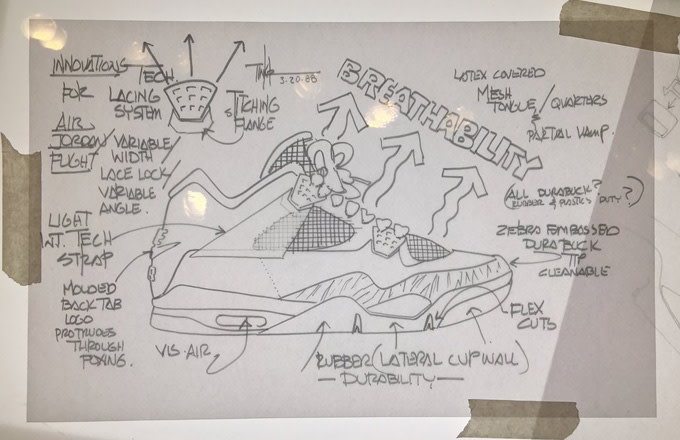 INNOVATIONS
FOR
AIR
JORDAN/
FLIGHT
TECH.
LACING
SYSTEM
VARIABLE
WIDTH
LACE LOCK/
VARIABLE
ANGLE.
STITCHING
FLANGE
3.20.88
BREATHABILITY
LATEX COVERED
MESH
TONGUE/QUARTERS
&
PARTIAL VAMP.
(ALL DURABUCK?
RUBBER & PLASTICS DUTY?)
ZEBRA EMBOSSED
DURABUCK
TIP
CLEANABLE
FLEX
CUTS
LIGHT
INT. TECH
STRAP
MOLDED
BACK TAB
LOGO
PROTRUDES
THROUGH
FOXING.
VIS. AIR.
RUBBER (LATERAL CUPWALL)
— DURABILITY —